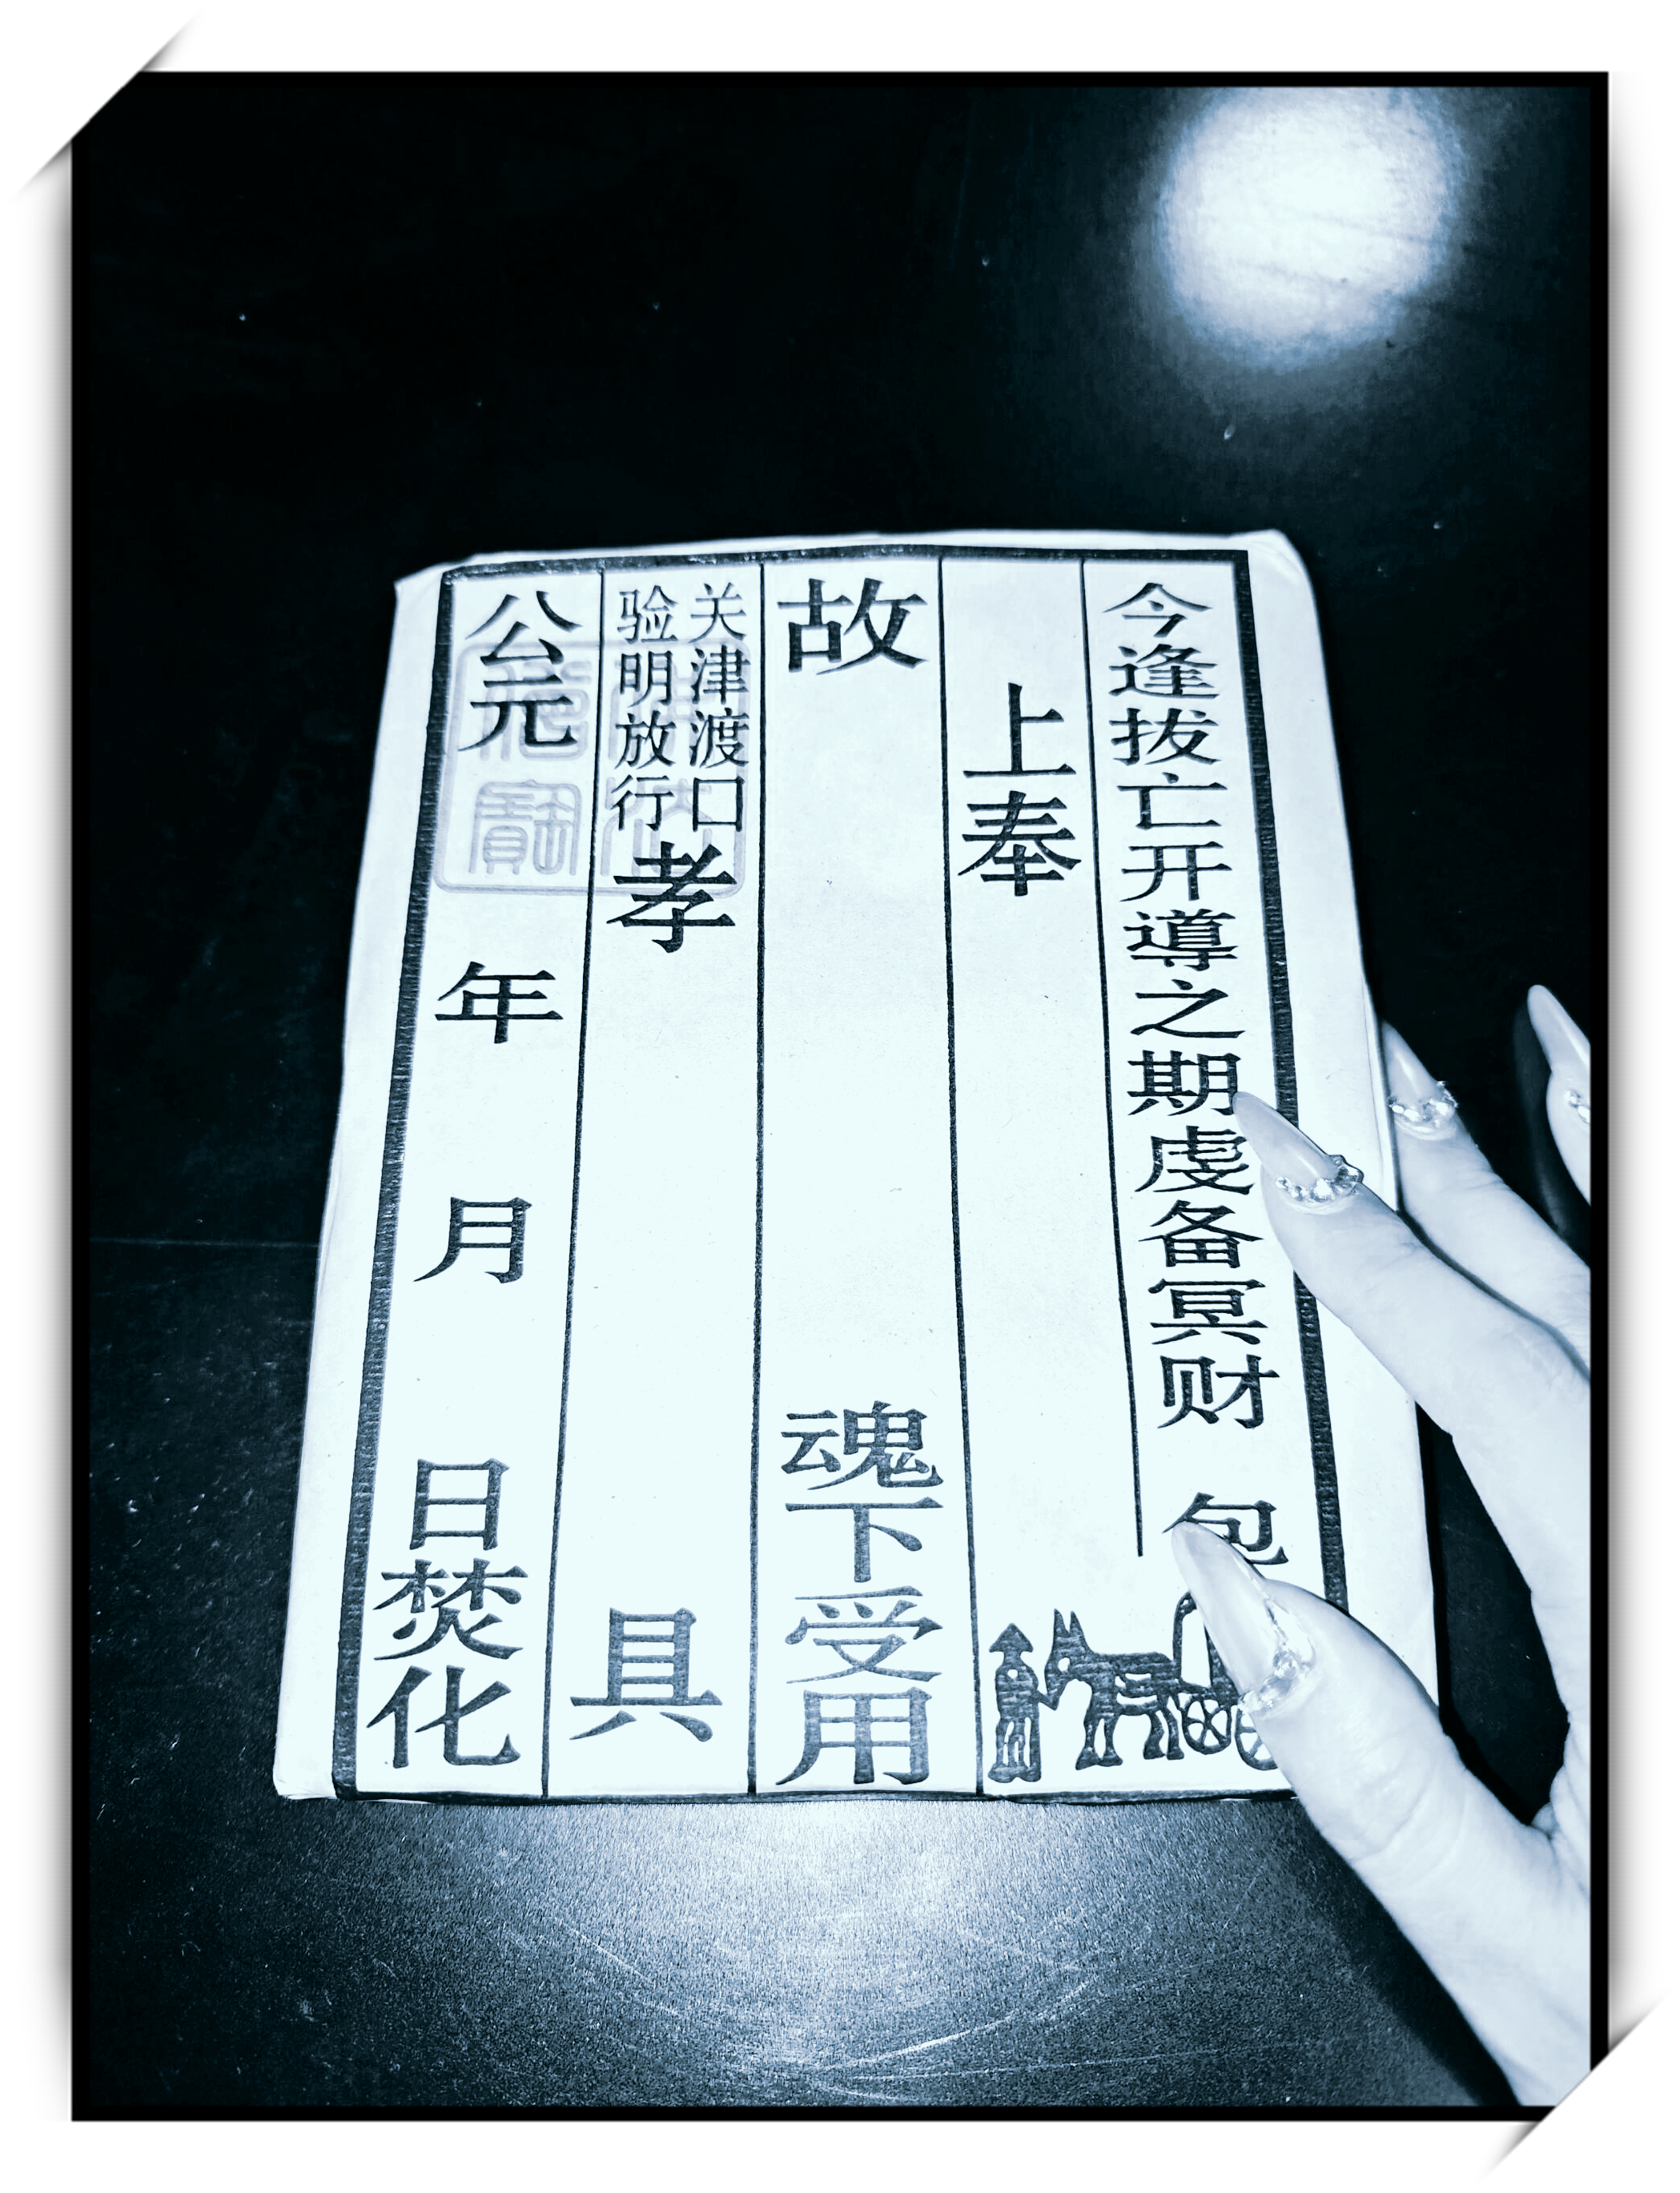 今逢拔亡开導之期虔备冥财 包
上奉
故 魂下受用
关津渡口
验明放行
孝 具
公元 年 月 日焚化